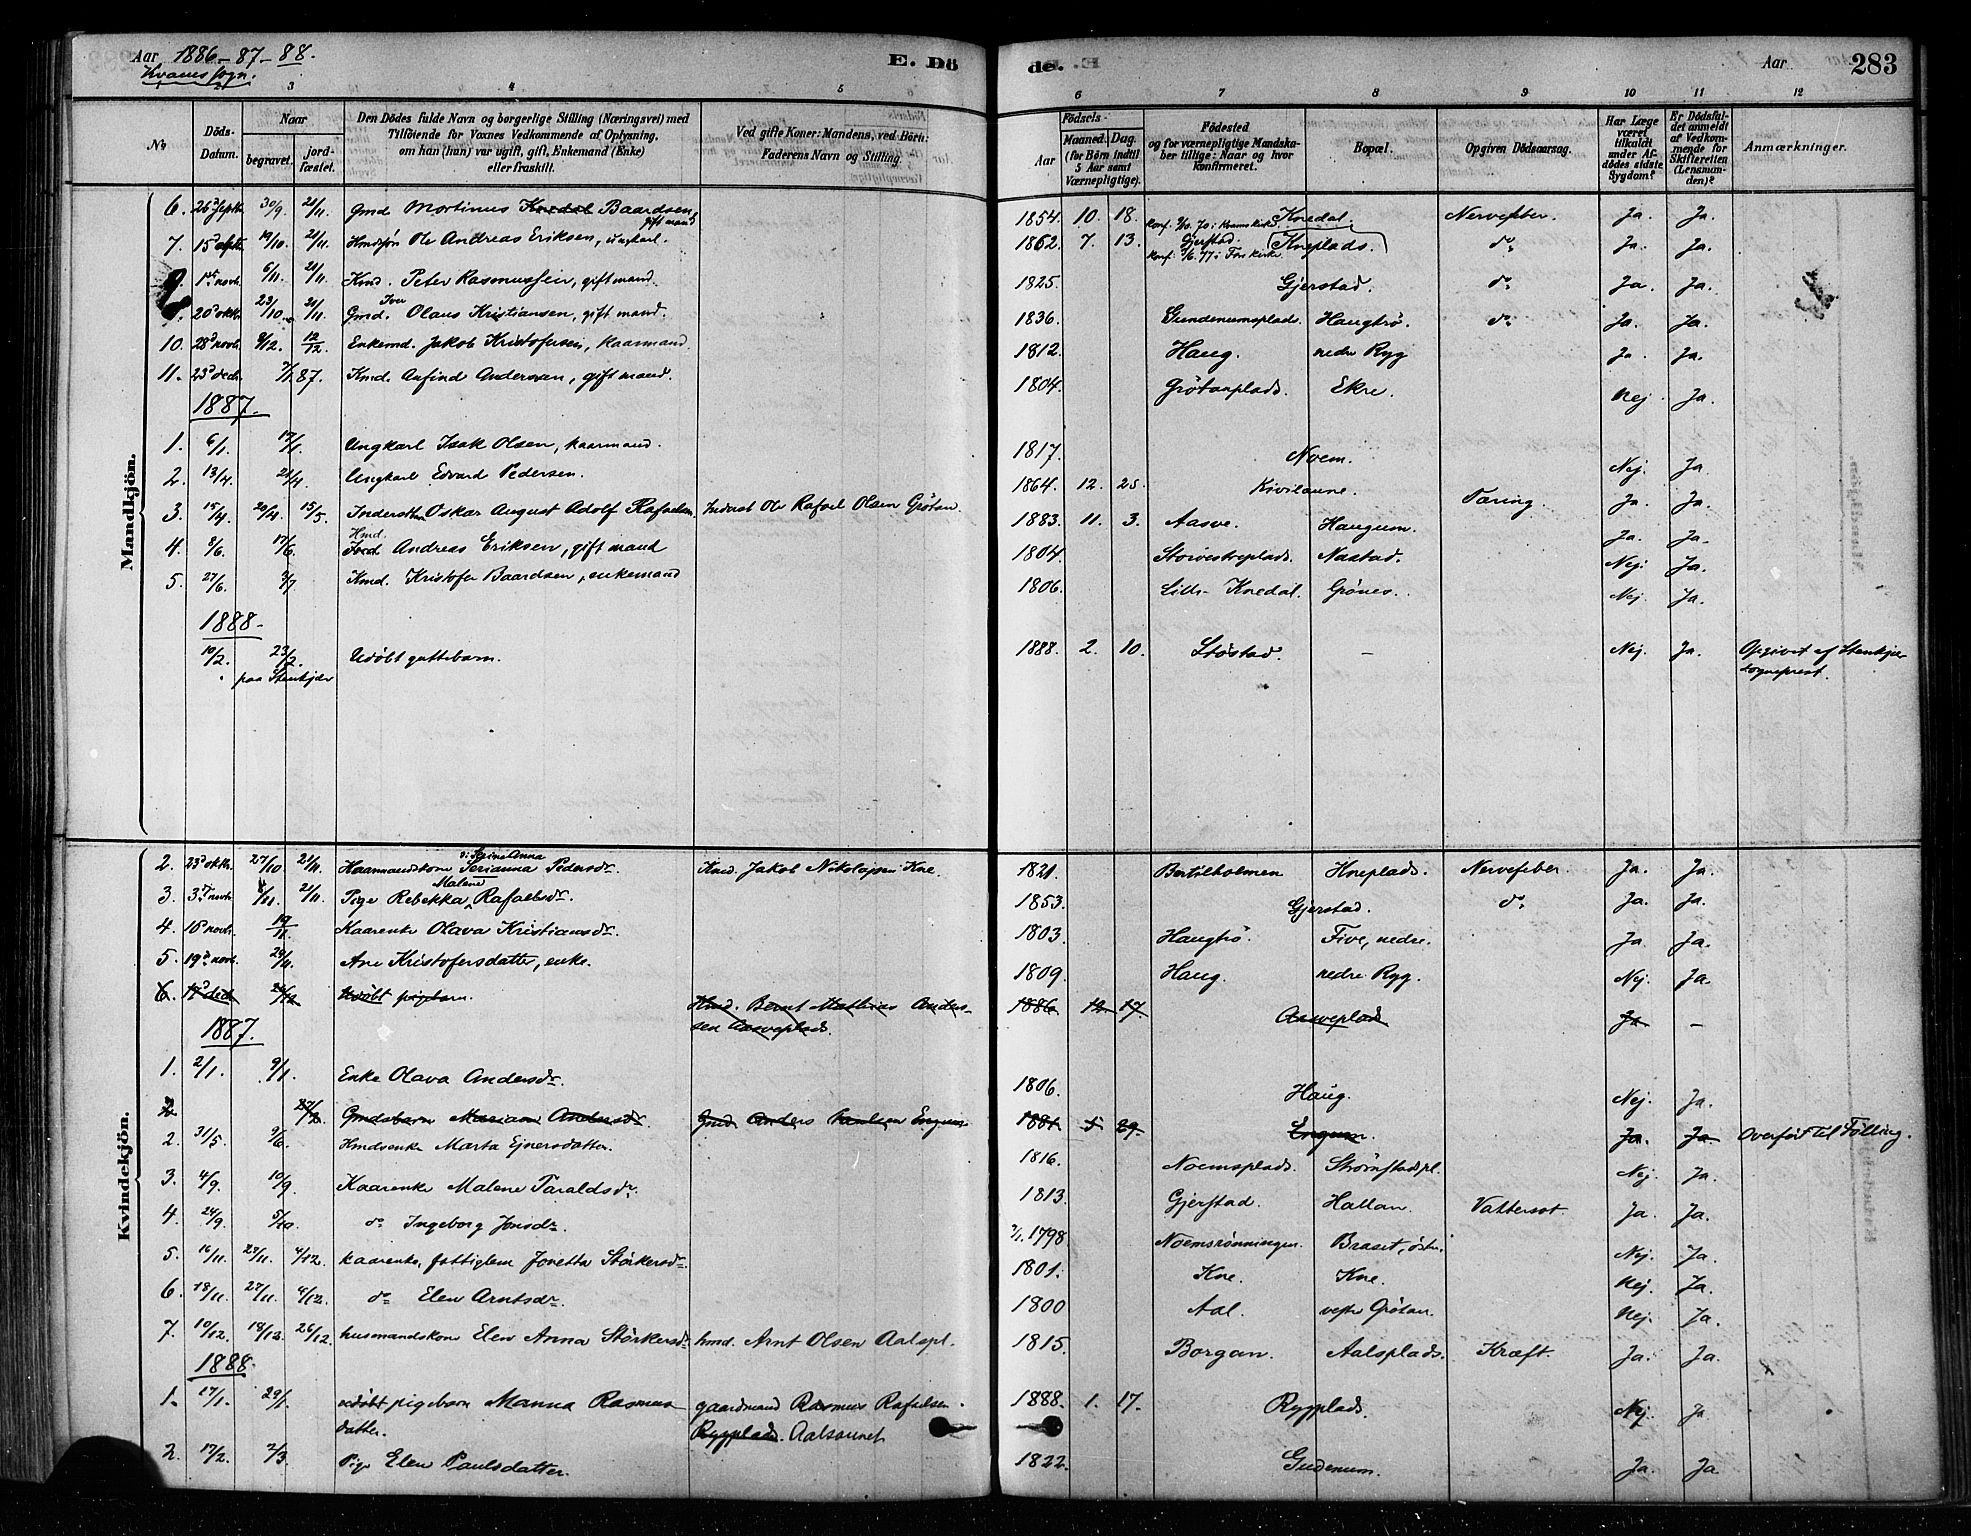 Aar 1886-87-88. E. Dö de. Aar 283
Kvams sogn.
2 3 4 5 6 7 8 9 10 11 12
No
Döds-Datum.
Naar
begravet.
jord-fæstet.
Den Dödes fulde Navn og borgerlige Stilling (Næringsvei) med
Tilföiende for Voxnes Vedkommende af Oplysning,
om han (hun) var ugift, gift, Enkemand (Enke)
eller fraskilt.
Ved gifte Koner: Mandens, ved Börn:
Faderens Navn og Stilling.
Födsels-
Aar
Maaned. Dag.
(for Börn indtil
5 Aar samt
Værnepligtige).
Födested
og for værnepligtige Mandska-
ber tillige: Naar og hvor
konfirmeret.
Bopæl.
Opgiven Dödsaarsag.
Har Læge
været
tilkaldt
under Af-
dödes sidste
Sygdom?
Er Dödsfal-
det anmeldt
af Vedkom-
mende for
Skifteretten
(Lensman-
den)?
Anmærkninger.
Mandkjön.
6. 26d septb. 30/9 21/11. Gmd Mortinus Knedal Baardsen, gift mand 1854. 10. 18. Konf. 2/10. 70 i Kvams kirke. Knedal. Nervefeber. Ja. Ja.
7. 15d 19/10. 21/11. Hmdssøn Ole Andreas Eriksen, ungkarl. 1862. 7. 13. Gjerstad. Konf. 77 i Fos kirke Kneplads. do Ja. Ja.
1ste novb. 6/11. 21/11. Kmd. Peter Rasmussen, gift mand. 1825. Gjerstad. do Ja. Ja.
20d oktb. 23/10. 21/11. Gmd. Iver Olaus Kristiansen, gift mand. 1836. Gundenumsplads. Haugtrø. do Ja. Ja.
10. 28d novb. 9/12. 12/12 Enkemd. Jakob Kristofersen, kaarmand. 1812. Haug. nedre Ryg Ja. Ja.
11. 23d decb. 7/1 87. Kmd. Anfind Andersen, gift mand. 1804. Grötanplads. Ekre. Nej. Ja.
1887.
1. 6/1. 17/1. Ungkarl Isak Olsen, kaarmand. 1817. Noem. Nej. Ja
2. 13/4. 21/4. Ungkarl Edvard Pedersen. 1864. 12. 25. Kivilaune. Tæring. Ja. Ja.
3. 15/4. 20/4. 15/5. Oskar August Adolf Rafaelsen. Inderst Ole Rafael Olsen Grötan. 1883. 11. 3. Aasve. Haugum. Ja. Ja.
4. 8/6. 17/6. Hmd. Andreas Eriksen, gift mand 1804. Storvestreplads. Nastad. Nej. Ja.
5. 27/6. 3/7. Kmd. Kristofer Baardsen, enkemand 1806. Lille-Knedal. Grönes. Nej. Ja.
1888.
10/2. 23/2. Udöbt guttebarn. 1888. 2. 10. Støstad. – Nej. Ja. Opgivet af Stenkjer
paa Stenkjder sogneprest.
Kvindekjön.
2. 23d oktb. 27/10 21/11. Kaarmandskone Serianna Pedersdr. Kmd. Jakob Nikolajsen Kne. 1821. Bertilholmen Kneplads. Nervefeber. Ja. Ja.
3. 3die novb. 8/11. 21/11. Pige Rebekka Malene Rafaelsdr. 1853. Gjerstad. do Ja. Ja.
4. 16 novb. 19/11. Kaarenke Olava Kristiansdr. 1803. Haugtrö. Five, nedre. Ja Ja.
5. 19d novb. 29/11. Ane Kristofersdatter, enke. 1809. Haug. nedre Ryg. Nej. Ja.
6. 17d decb. 24/12. Udöbt pigebarn. Hmd. Bernt Mathias Anders- 1886. 12 17. Aasveplads Ja –
sen Aasveplads.
1887.
1. 2/1. 9/1. Enke Olava Andersdr. 1806. Haug. Nej. Ja.
2 27/2 Gmdsbarn Mariam Andersdr. Gmd Anders Engum 1881. 5 29. Engum. Ja. Ja Overfört til Fölling.
2. 31/5. 9/6. Hmdsenke Marta Ejnersdatter. 1816. Noemsplads. Strömstadspl. Nej. Ja.
3. 4/9. 10/9. Kaarenke Malene Taraldsdr. 1813. Gjerstad. Hallan. Vattersot. Ja. Ja.
4. 24/9. 5/10. do Ingeborg Jonsdr. 1798. Noemsrönningen. Braset, östre. Nej. Ja.
5. 16/11. 27/11. 4/12. Kaarenke, fattiglem Jonetta Störkersdr. 1801. Kne. Kne. Nej. Ja.
6. 18/11. 27/11. 4/12. do Elen Arntsdr. 1800 Aal. vestre Grötan. Nej. Ja.
7. 10/12. 18/12. 26/12. husmandskone Elen Anna Störkersdr. hmd. Arnt Olsen Aalspl. 1815. Borgan. Aalsplads. Kræft. Ja. Ja.
1888.
1. 17/1. 29/1. udöbt pigebarn Manna Rasmus- gaardmand Rasmus Rafaelsen. 1888. 1. 17. Rygplads. Nej. Ja
datter. Rygplads. Aalsaunet
2. 17/2. 2/3. Pige Elen Paulsdatter. 1822. Gudenum. Ja. Ja